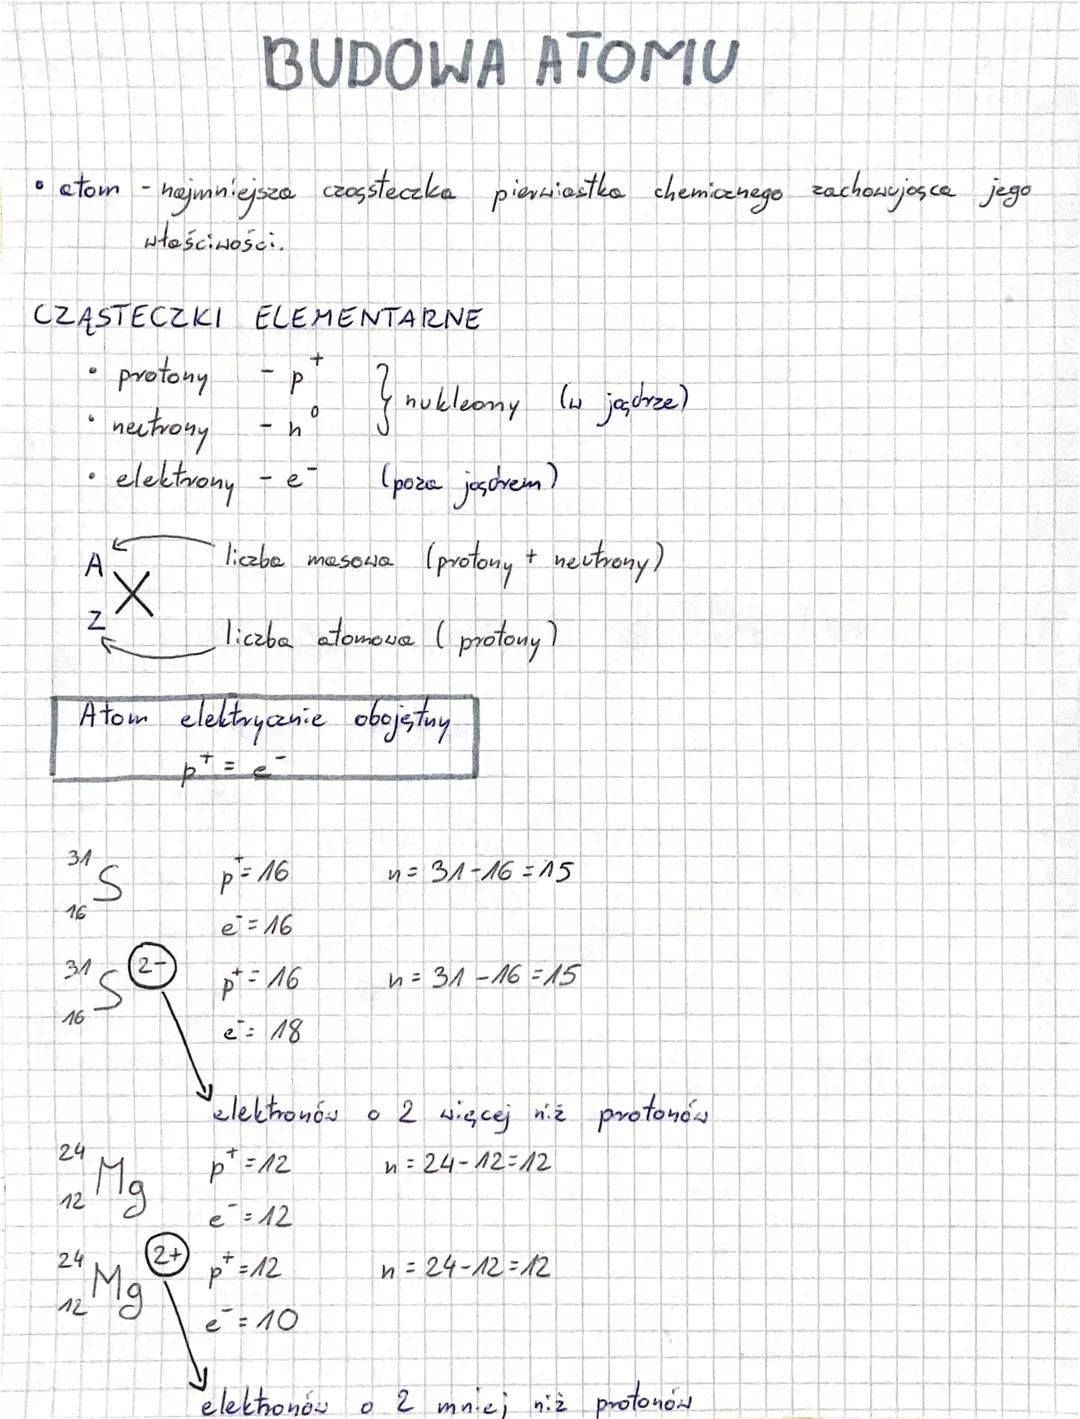 BUDOWA ATOMU
• atom - najmniejsza cząsteczka pierwiastka chemicznego zachowująca jego
właściwości.
CZĄSTECZKI ELEMENTARNE
• protony - p⁺
• neutrony - n⁰
} nukleony (w jądrze)
• elektrony - e⁻ (poza jądrem)
A liczba masowa (protony + neutrony)
X
Z liczba atomowa (protony)
Atom elektrycznie obojętny
p⁺ = e⁻
³¹₁₆S p⁺ = 16 n = 31-16 = 15
e⁻ = 16
³¹₁₆S²⁻ p⁺ = 16 n = 31-16 = 15
e⁻ = 18
elektronów o 2 więcej niż protonów
²⁴₁₂Mg p⁺ = 12 n = 24-12 = 12
e⁻ = 12
²⁴₁₂Mg²⁺ p⁺ = 12 n = 24-12 = 12
e⁻ = 10
elektronów o 2 mniej niż protonów